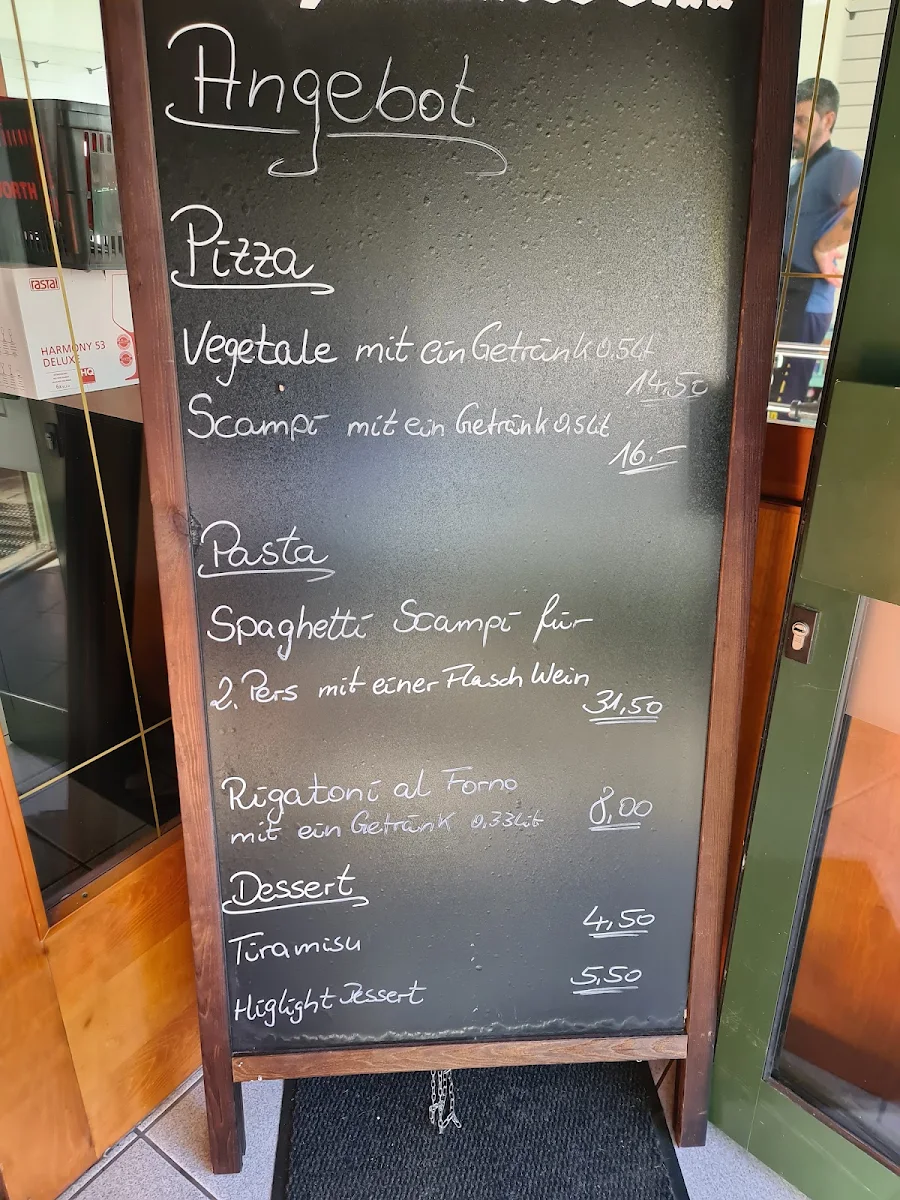 Angebot
Pizza
Vegetale mit ein Getränk 0,5Lt
14,50
Scampi mit ein Getränk 0,5Lit
16.–
Pasta
Spaghetti Scampi für
2. Pers mit einer Flasch Wein
31,50
Rigatoni al Forno
mit ein Getränk 0,33Lit
8,00
Dessert
Tiramisu
4,50
Higlight Dessert
5,50
rastal
HARMONY 53
DELUXE
HQ
ORTH